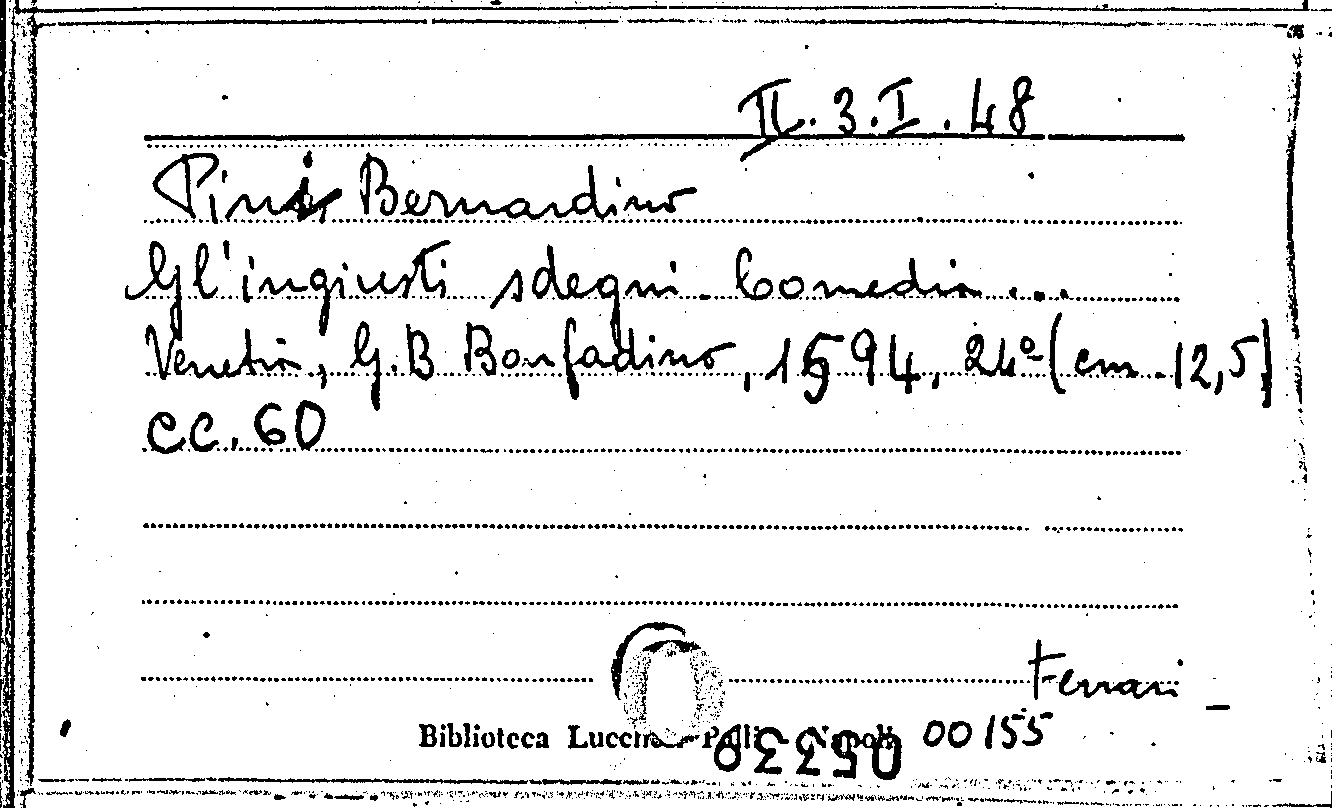 II.3.I.48
Pini, Bernardino
Gl'ingiusti sdegni. Comedia ...
Venetia, G.B Bonfadino, 1594, 24º (cm. 12,5)
cc. 60
Ferrari
Biblioteca Lucchesi Palli - Napoli 00155